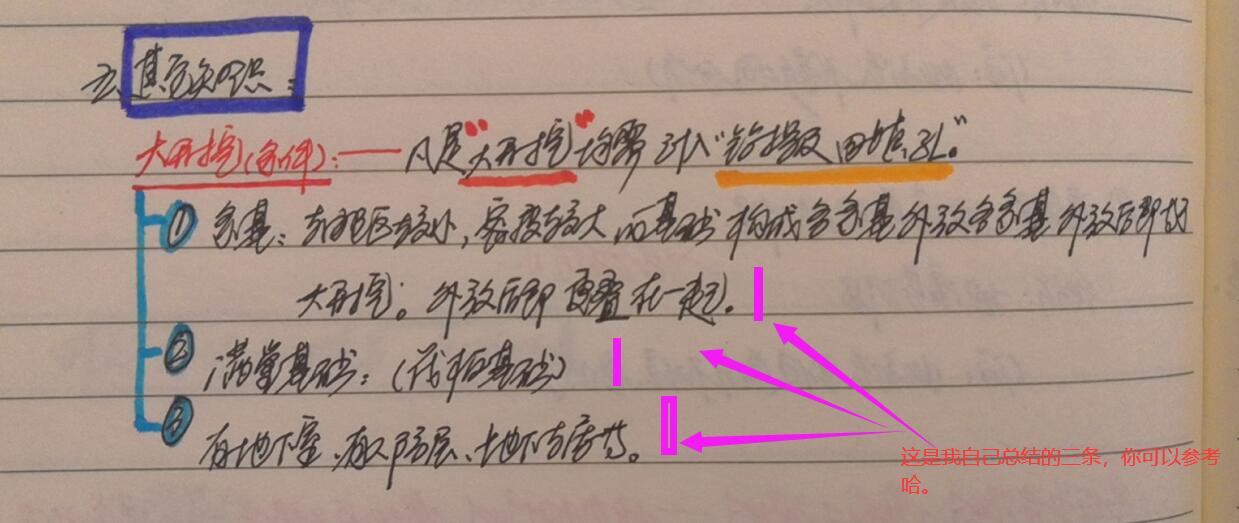 五、其它知识：
大开挖(条件)：—— 凡是"大开挖"均需引入"钎探及回填孔"。
① 条基：占地区较小，密度较大，而基础构成各条基外放各条基外放后即成
大开挖。外放后即重叠在一起。
② 满堂基础：(筏板基础)
③ 有地下室、有人防层、地下车库等。
这是我自己总结的三条，你可以参考
哈。